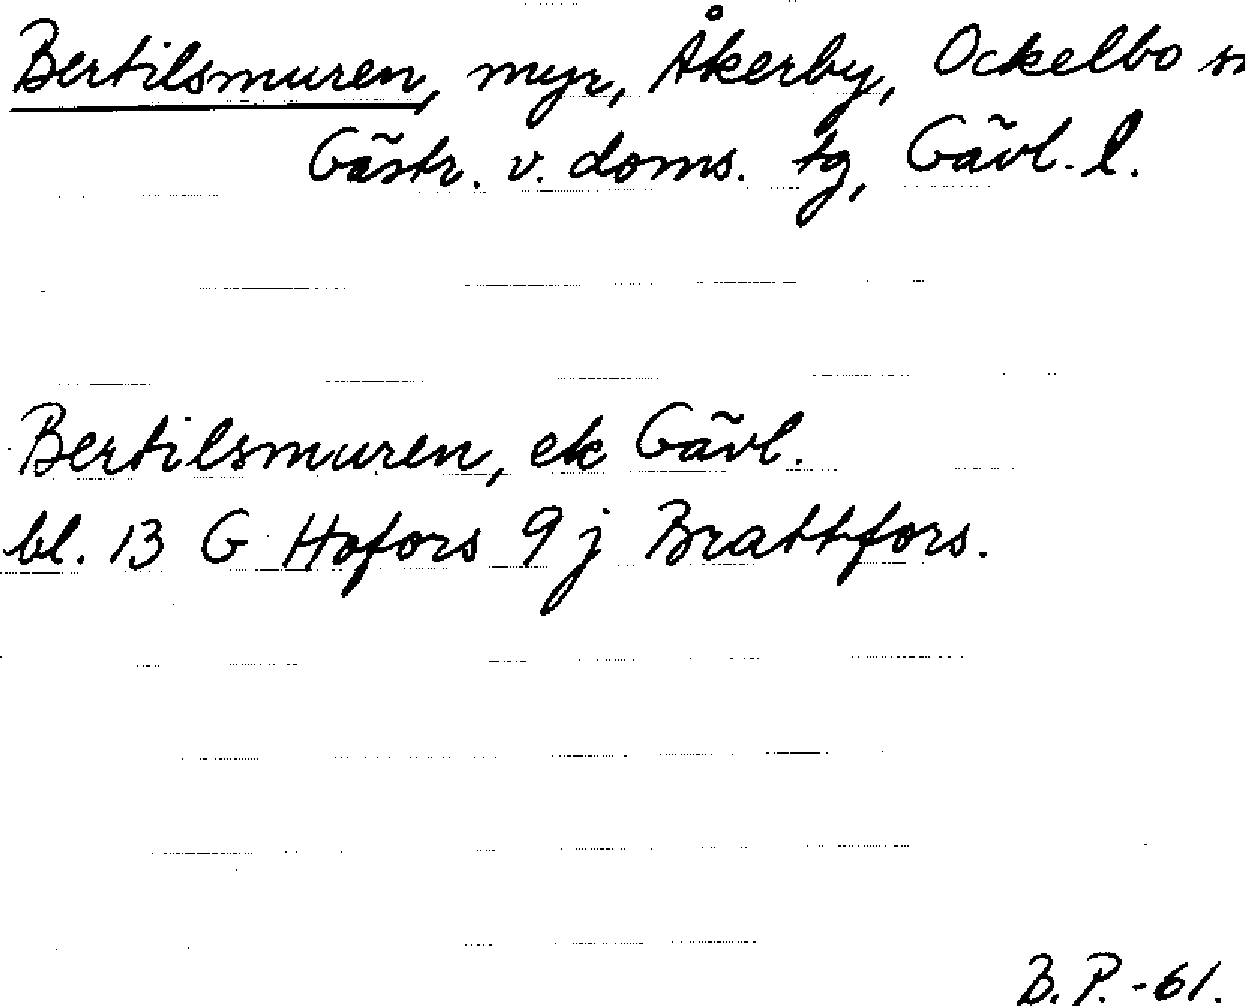 Bertilsmuren, myr, Åkerby, Ockelbo
Gästr. v. doms. tg, Gävl. l.
Bertilsmuren, ek Gävl.
bl. 13 G Hofors 9 j Brattfors.
B. P. -61.